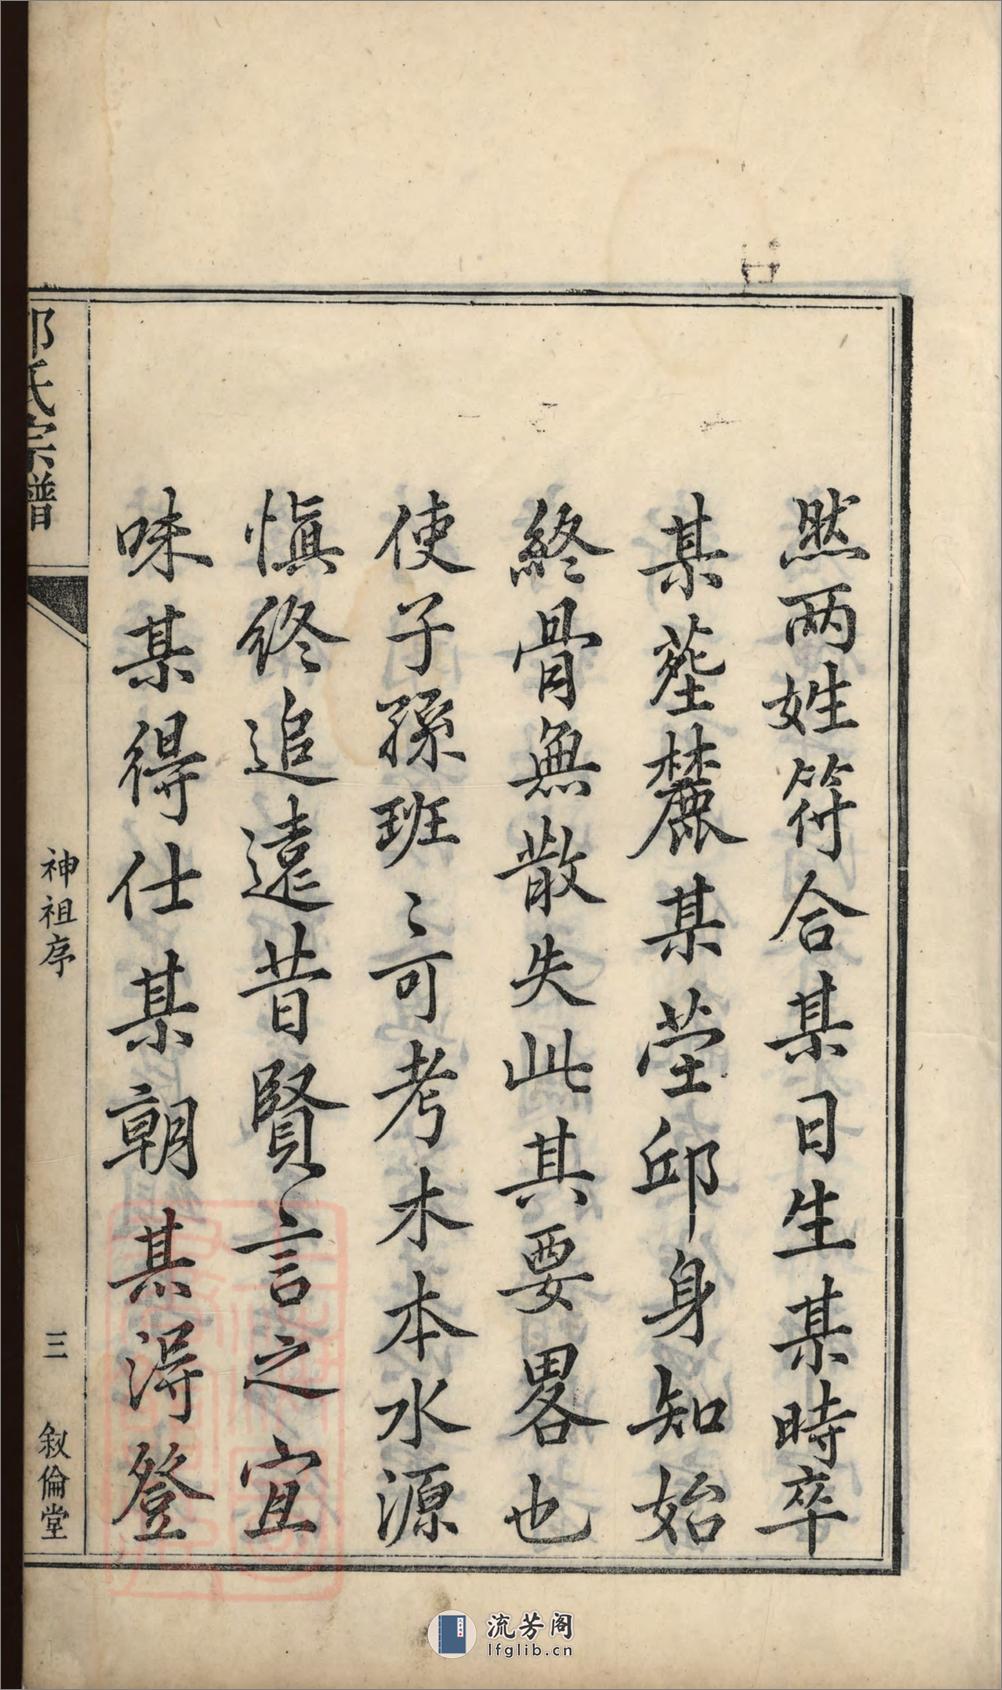 然两姓符合某日生某時卒
某塟麓某茔邱身知始
終骨無散失此其要畧也
使子孫班〻可考木本水源
愼終追遠昔賢言之宜
味某得仕某朝某得登
氏宗譜
神祖序
三
敘倫堂
流芳阁
lfglib.cn